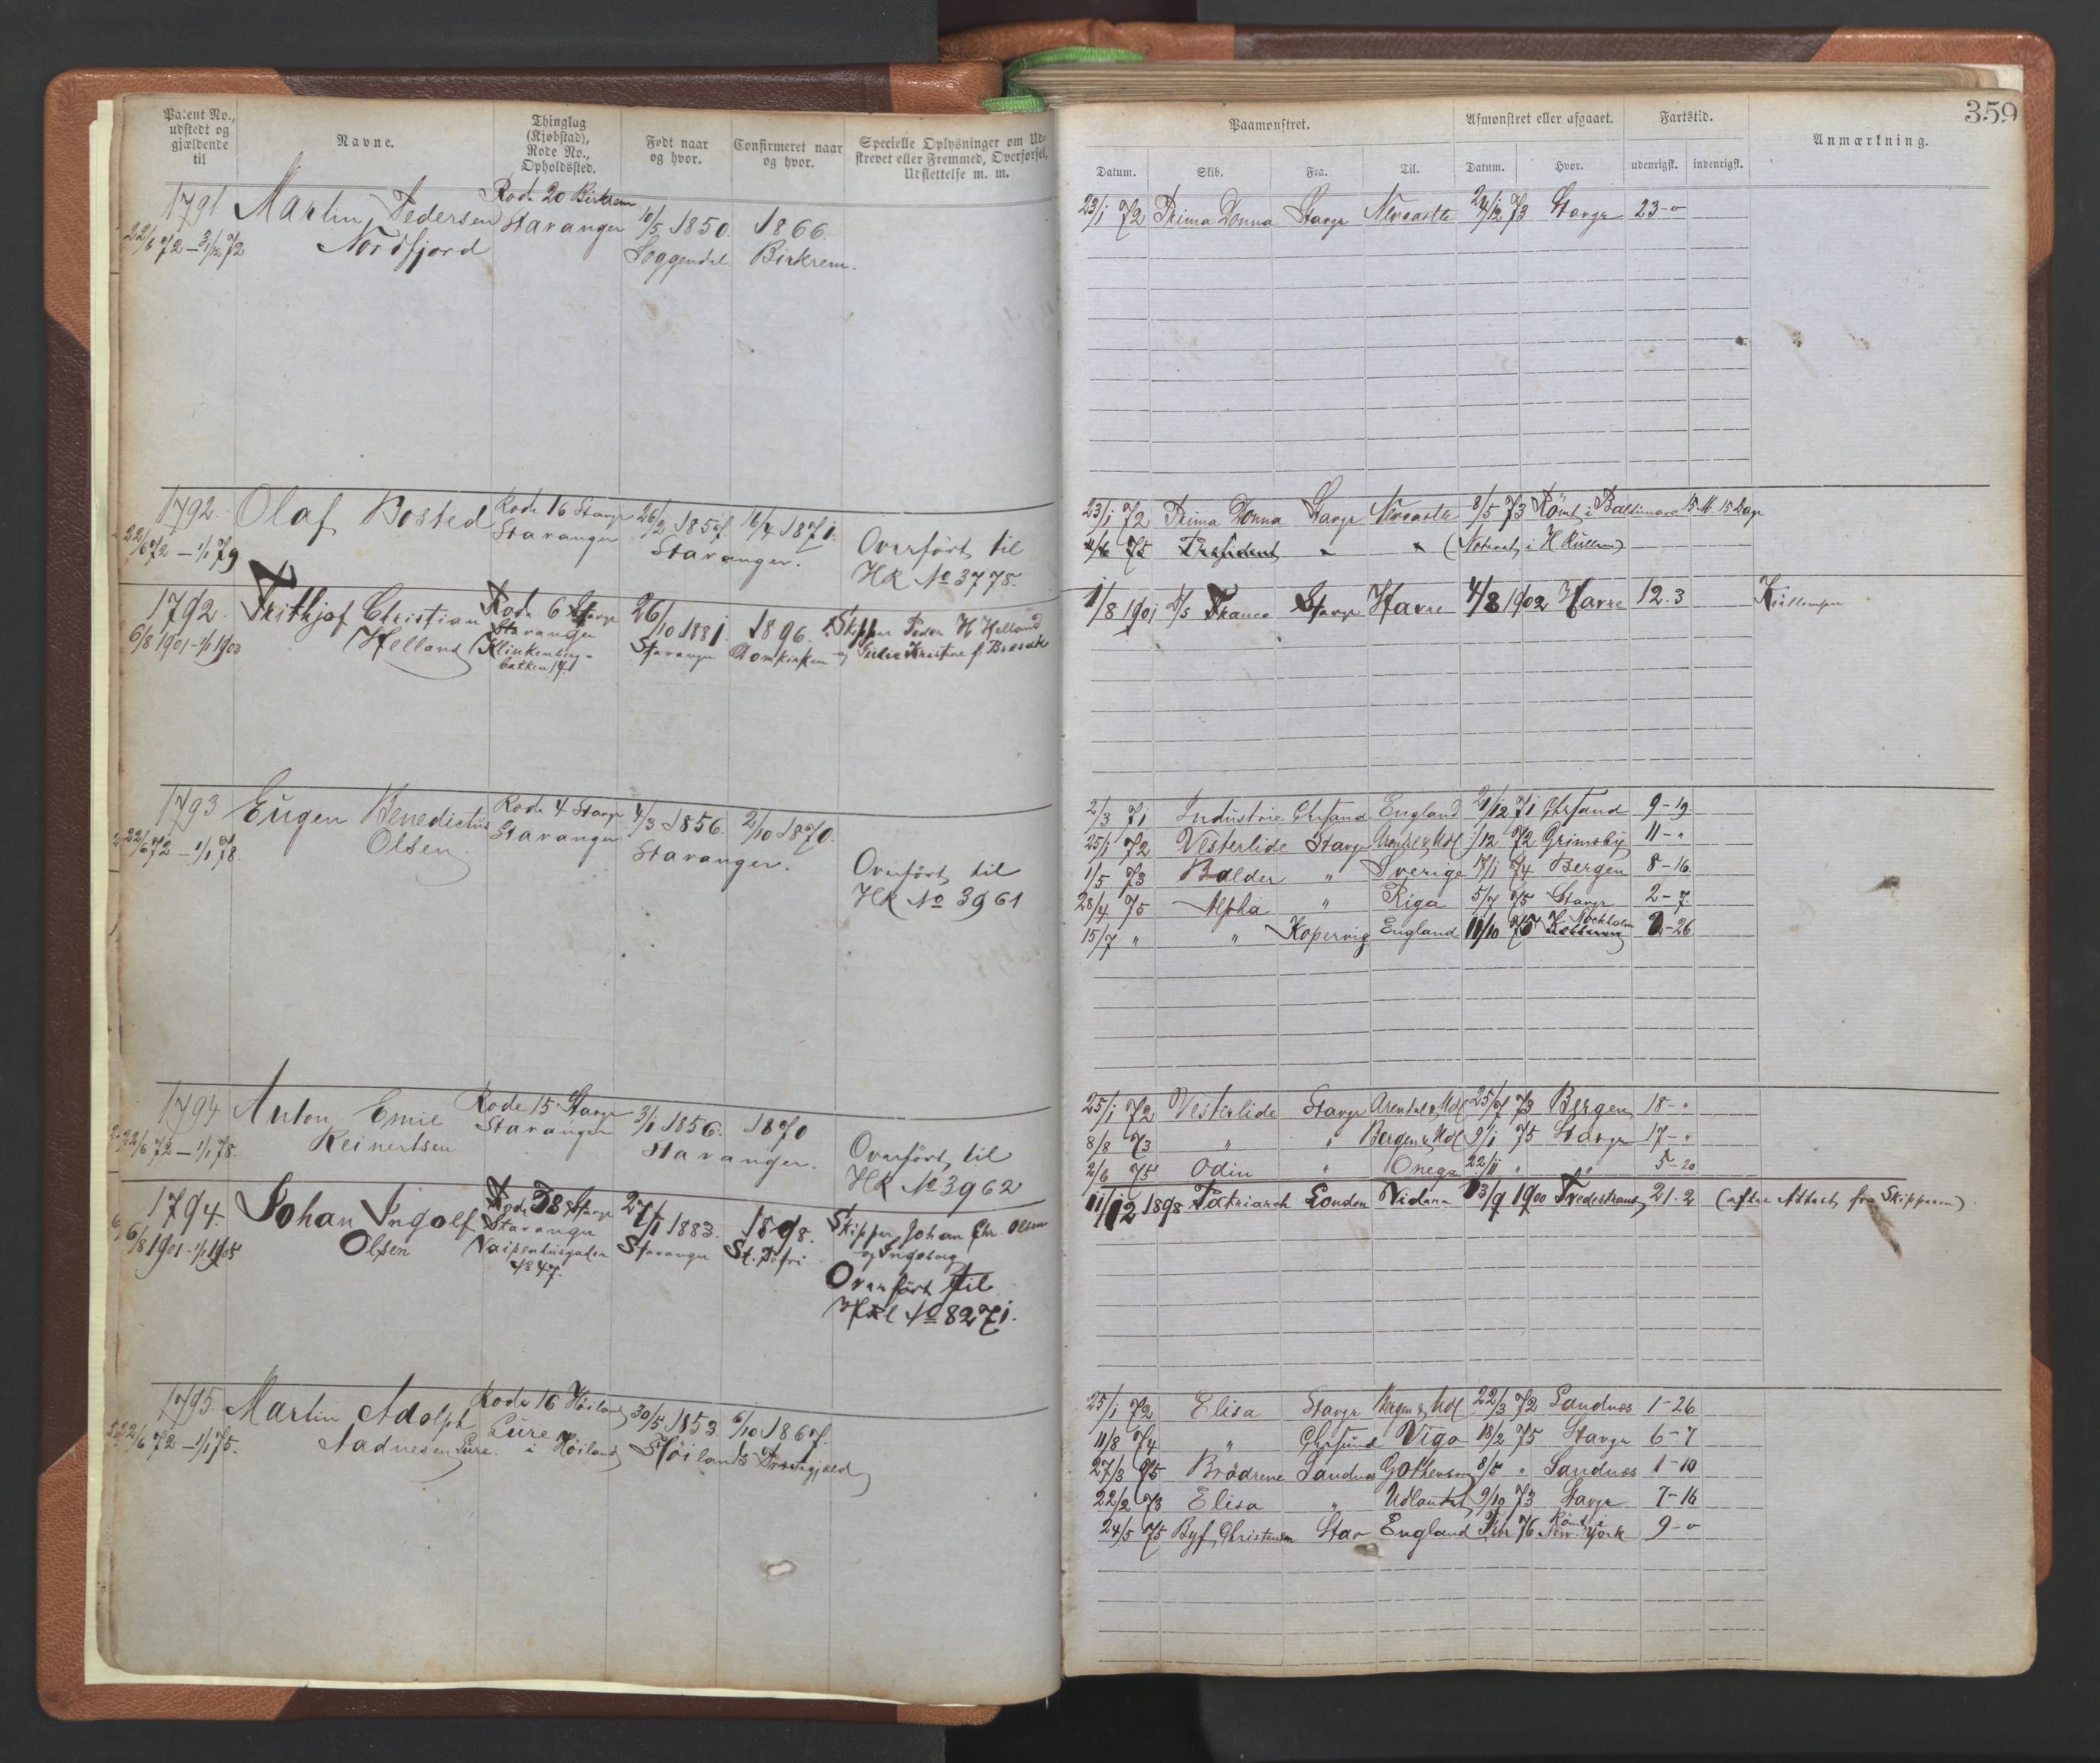 359
Patent No., udstedt og gjældende til
Navne.
Thinglag (Kjøbstad), Rode No., Opholdssted.
Født naar og hvor.
Confirmeret naar og hvor.
Specielle Oplysninger om Udskrevet eller Fremmed, Overførsel, Udslettelse m. m.
Paamonstret.
Afmonstret eller afgaaet.
Fartstid.
Anmærkning.
Datum. Skib. Fra. Til. Datum. Hvor. udenrigsk. indenrigsk.
1791 Martin Pedersen Rode 20 Birkrem
22/6 72 – 31/12 72 Nordfjord Stavanger 10/5 1850. 1866.
Soggendal. Birkrem.
23/1 72 Prima Donna Stavgr Newcastle 24/12 73 Stavgr 23 - "
1792. Olaf Bosted Rode 16 Stavgr 26/2 1857. 16/4 1871.
22/6 72 – 1/1 79 Stavanger Stavanger. Overført til
HR No 3778.
23/1 72 Prima Donna Stavgr Newcastle 8/5 73 Römt i Baltimore 15 M. 15 Dage
75 President " " (Noteret i H. Rullen)
1792. Frithjof Christian Rode 6 Stavgr 26/10 1881. 1896. Skipper Peder H Helland
6/8 1901 - 1/1 1903 Helland Stavanger Stavanger Domkirken og
Klinkenberg-
bakken 14
1/8 1901 D/S Franco Stavgr Havre 4/8 1902 Havre 12.3
1793 Eugen Benedictus Rode 4 Stavgr 4/3 1856. 2/10 1870.
22/6 72 – 1/1 78. Olsen. Stavanger Stavanger.
Overført til
HR No 3961
2/3 71 Industrie Chrsand England 21/12 71 Chrsand 9 - 19.
25/1 72 Vesterlide Stavgr Arendal & Udl /12 72 Grimsby 11 - "
1/5 73 Balder " Sverige 17/1 74 Bergen 8 - 16
28/4 75 Alpha " Riga 5/7 75 Stavgr 2 - 7.
15/7 " " Kopervig England 11/10 75 Stockholm 2 - 26
1794 Anton Emil Rode 15 Stavgr 3/1 1856. 1870
22/6 72 – 1/1 78. Reinertsen Stavanger Stavanger. Overført til
HR No 3962
25/1 72 Vesterlide Stavgr Arendal & Udl 25/7 73 Bergen 18 - "
8/8 73 " " Bergen & Udl 9/1 75 Stavgr 17 - "
2/6 75 Odin " Onega 22/11 " " 5 - 20
1794. Johan Ingolf Rode 38 Stavgr 27/1 1883. 1898. Skipper Johan Chr. Olsen
6/8 1901 - 1/1 1905 Olsen Stavanger Stavanger St. Petri og Ingeborg
Overført til
No 8271.
11/12 1898 Patriarch London 13/9 1900 Tvedestrand 21.2 (efter Attest fra Skipperen)
1795. Martin Adolph Rode 16 Höiland 30/5 1853. 6/10 1867.
22/6 72 – 1/1 75. Aadnesen Lure. Lure i Höiland Höilands Præstegjæld
25/1 72 Elisa Stavgr Bergen & Udl 22/3 72 Sandnes 1 - 26
11/8 74 " Chrsund Vigo 18/2 75 Stavgr 6 - 7
27/3 75 Brödrene Sandnes Gothenborg 8/5 " Sandnes 1 - 10
22/2 73 Elisa " Udlandet 9/10 73 Stavgr 7 - 16
24/5 75 Byf. Christensen Stav England Febr 76 Römt i New York 9 - "